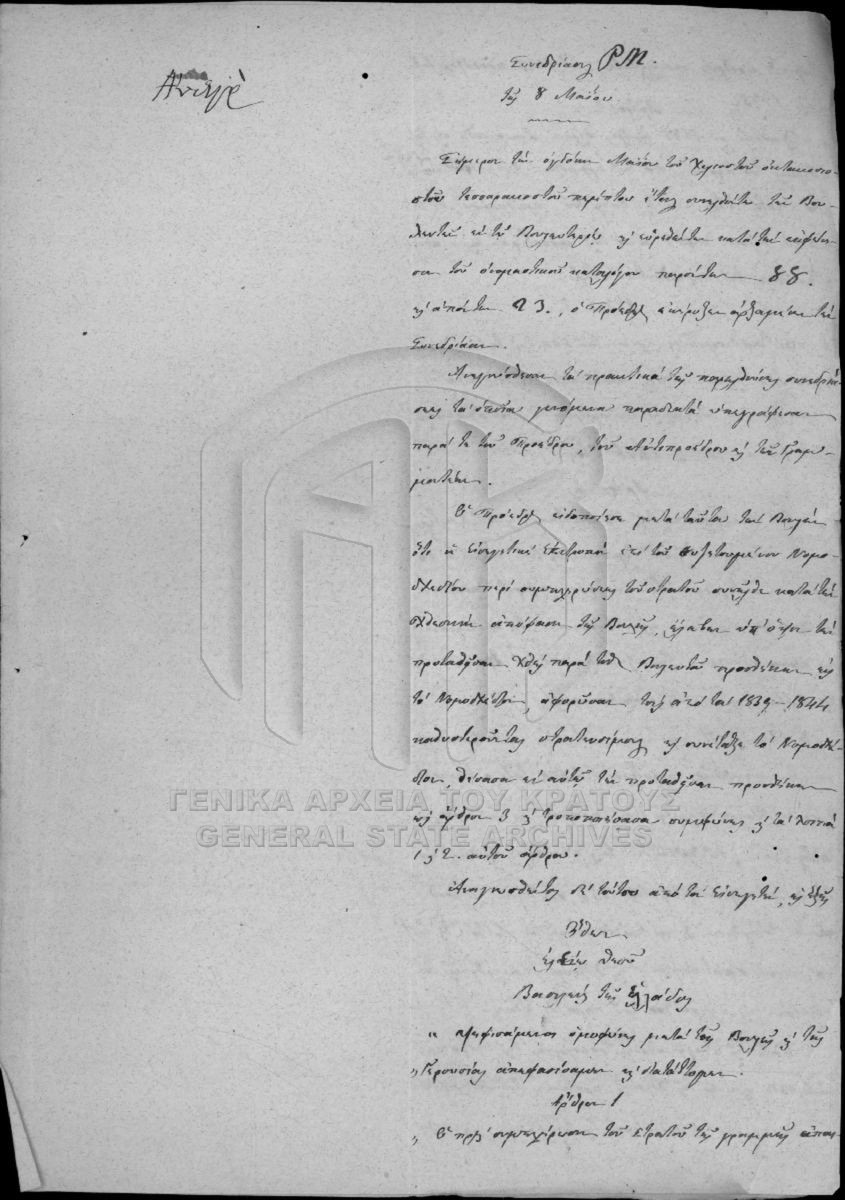 Συνεδρίασις ΡΜ.
τῆς 8 Μαΐου
Σήμερον τὴν ὀγδόην Μαΐου τοῦ χιλιοστοῦ ὀκτακοσιο-
στοῦ τεσσαρακοστοῦ πέμπτου ἔτους συνελθόντες οἱ Βου-
λευταὶ εἰς τὸ Βουλευτήριον καὶ εὑρεθέντες κατὰ τὴν
τοῦ ὀνομαστικοῦ καταλόγου παρόντες 88.
καὶ ἀπόντες 23., ὁ Πρόεδρος ἐκήρυξεν ἀρξαμένην τὴν
Συνεδρίασιν.
Ἀνεγνώσθησαν τὰ πρακτικὰ τῆς παρελθούσης συνεδριά-
σεως τὰ ὁποῖα γενόμενα παραδεκτὰ ὑπεγράφησαν
παρά τε τοῦ Προέδρου, τοῦ Ἀντιπροέδρου καὶ τῶν Γραμ-
ματέων.
Ὁ Πρόεδρος εἰδοποίησε μετὰ ταῦτα τὴν Βουλὴν
ὅτι ἡ Εἰσηγητικὴ Ἐπιτροπὴ ἐπὶ τοῦ συζητουμένου Νομο-
σχεδίου περὶ συμπληρώσεως τοῦ στρατοῦ συνῆλθε κατὰ τὴν
χθεσινὴν ἀπόφασιν τῆς Βουλῆς, ἔλαβεν ὑπ' ὄψιν τὴν
προταθεῖσαν χθὲς παρὰ τοῦ Βουλευτοῦ προσθήκην εἰς
τὸ Νομοσχέδιον, ἀφορῶσαν τοὺς ἀπὸ τοῦ 1839-1844
καθυστεροῦντας στρατευσίμους καὶ συνέταξε τὸ Νομοσχέ-
διον, θέσασα εἰς αὐτὸ τὴν προταθεῖσαν προσθήκην
ὡς ἄρθρον 3 καὶ τροποποιήσασα συμφώνως καὶ τὰ λοιπὰ
1 καὶ 2. αὐτοῦ ἄρθρα.
Ἀναγνωσθέντος δὲ τούτου ἀπὸ τοῦ Εἰσηγητοῦ, ὡς ἑξῆς
Ὄθων
ἐλέῳ Θεοῦ
Βασιλεὺς τῆς Ἑλλάδος
" Ψηφισάμενοι ὁμοφώνως μετὰ τῆς Βουλῆς καὶ τῆς
" Γερουσίας ἀπεφασίσαμεν καὶ διατάττομεν.
Ἄρθρον 1
" Ἡ πρὸς συμπλήρωσιν τοῦ Στρατοῦ τῆς γραμμῆς
ΓΕΝΙΚΑ ΑΡΧΕΙΑ ΤΟΥ ΚΡΑΤΟΥΣ
GENERAL STATE ARCHIVES